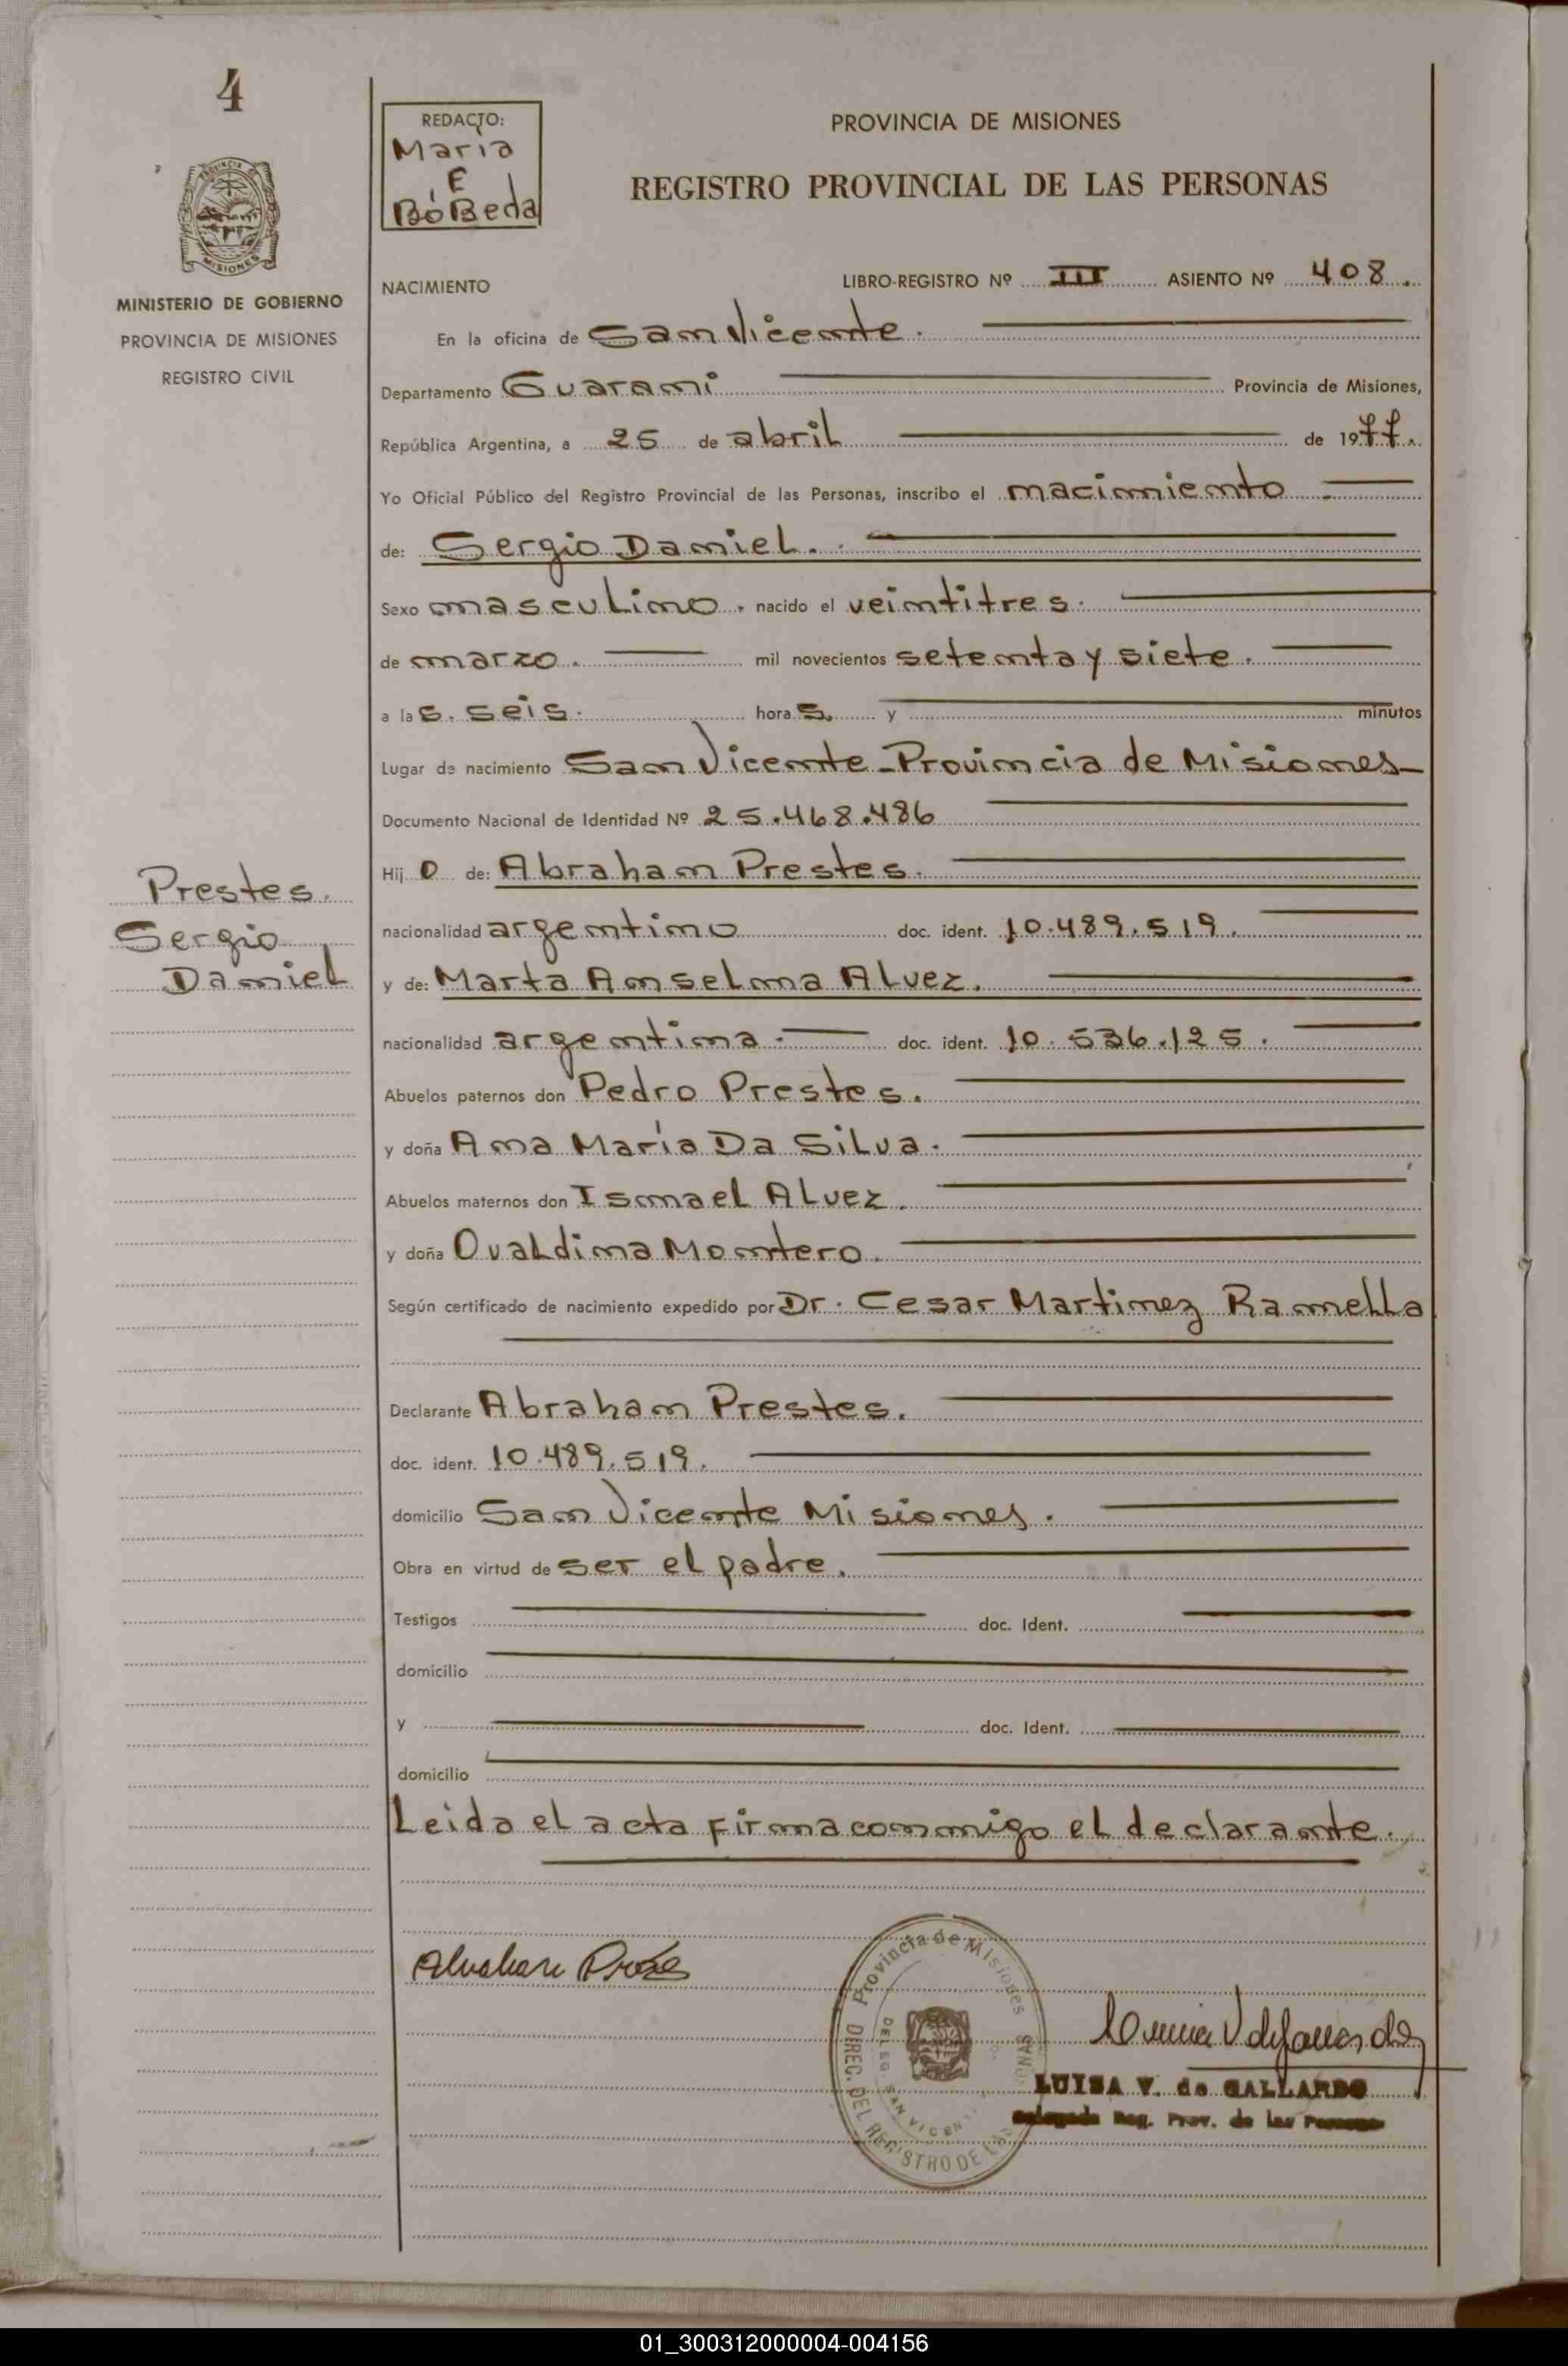 4
REDACTO:
Maria
E
BóBeda
PROVINCIA DE MISIONES
REGISTRO PROVINCIAL DE LAS PERSONAS
MISIONES
MINISTERIO DE GOBIERNO
PROVINCIA DE MISIONES
REGISTRO CIVIL
NACIMIENTO LIBRO-REGISTRO Nº III ASIENTO Nº 408.
En la oficina de San Vicente.
Departamento Guarani Provincia de Misiones,
República Argentina, a 25 de abril de 1977.
Yo Oficial Público del Registro Provincial de las Personas, inscribo el nacimiento
de: Sergio Daniel.
Sexo masculino. nacido el veintitres.
de marzo. mil novecientos setenta y siete.
a las. seis. horas. y minutos
Lugar de nacimiento San Vicente-Provincia de Misiones
Documento Nacional de Identidad Nº 25.468.486
Hijo de: Abraham Prestes.
nacionalidad argentino doc. ident. 10.489.519.
y de: Marta Anselma Alvez.
nacionalidad argentina. doc. ident. 10.536.125.
Abuelos paternos don Pedro Prestes.
y doña Ana María Da Silva.
Abuelos maternos don Ismael Alvez.
y doña Ovaldina Montero.
Según certificado de nacimiento expedido por Dr. Cesar Martinez Ramella
Declarante Abraham Prestes.
doc. ident. 10.489.519.
domicilio San Vicente Misiones.
Obra en virtud de ser el padre.
Testigos doc. Ident.
domicilio
y doc. Ident.
domicilio
Leida el acta firma conmigo el declarante.
Prestes.
Sergio
Daniel
Provincia de Misiones
DIREC. DEL REGISTRO DE LAS
DELEG. SAN VICENTE
LUISA V. de GALLARDO
Delegada Reg. Prov. de las Personas
01_300312000004-004156